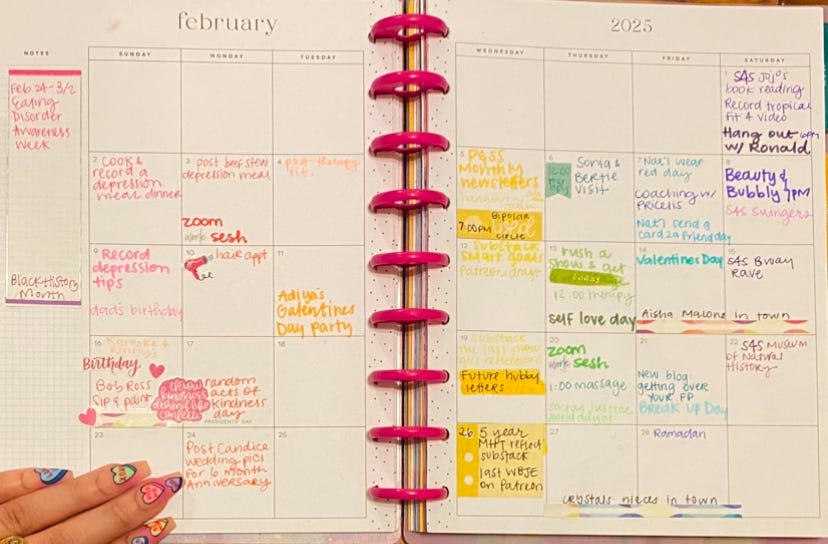 february
2025
NOTES
SUNDAY
MONDAY
TUESDAY
WEDNESDAY
THURSDAY
FRIDAY
SATURDAY
Feb 24-3/2
Eating
Disorder
Awareness
Week
Black History
Month
1 S4S JoJo's
book reading
Record tropical
Fit 4 video
Hang out 6pm
w/ Ronald
2 Cook &
record a
depression
meal dinner
3 post beef stew
depression meal
zoom
work sesh
4 post therapy
fit
5
Monthly
newsletters
7:00PM Bipolar
circle
6 Sonia &
Bertie
visit
12:00
7 Nat'l wear
red day
coaching w/
Nat'l send a
card 2 a friend day
8
Beauty &
Bubbly 7PM
S4S Swingers
9 Record
depression
tips
dad's birthday
10 hair appt
11
Adiya's
Galentines
Day party
12 Substack
smart goals
Patreon draft
13 rush a
show & get
today
12:00 therapy
self love day
14
Valentines Day
15
S4S Bway
Rave
Aisha Malone in town
16 Karaoke &
Birthday
Bob Ross
Sip & paint
17
random
acts of
kindness
day
PRESIDENTS' DAY
18
19 Substack
Future hubby
letters
20
zoom
work sesh
1:00 massage
social justice
world day of
21
New blog
getting over
your FP
Break Up Day
22 S4S Museum
of Natural
History
23
24
Post Candice
wedding pics
for 6 Month
Anniversary
25
26 5 year
MHT reflect
substack
last WBJE
on Patreon
27
28 Ramadan
crystals nieces in town